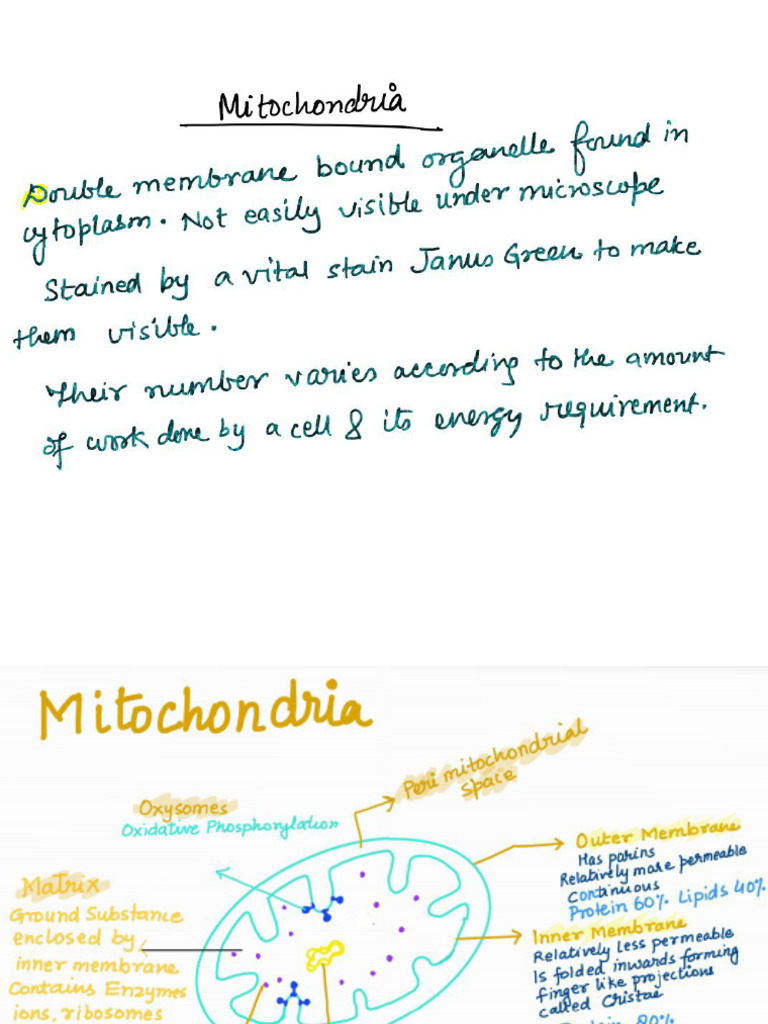 Mitochondria
Double membrane bound organelle found in
cytoplasm. Not easily visible under microscope
Stained by a vital stain Janus Green to make
them visible.
Their number varies according to the amount
of work done by a cell & its energy requirement.
Mitochondria
Peri mitochondrial
space
Oxysomes
Oxidative Phosphorylation
Outer Membrane
Has porins
Relatively more permeable
Continuous
Protein 60% Lipids 40%
Matrix
Ground Substance
enclosed by
inner membrane
Contains Enzymes
ions, ribosomes
Inner Membrane
Relatively less permeable
Is folded inwards forming
finger like projections
called Cristae
80%